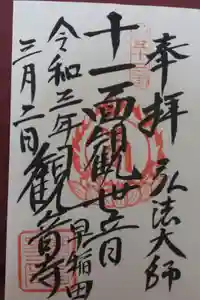 奉拝
弘法大師
十一面観世音
早稲田
観音寺
令和三年
三月二日